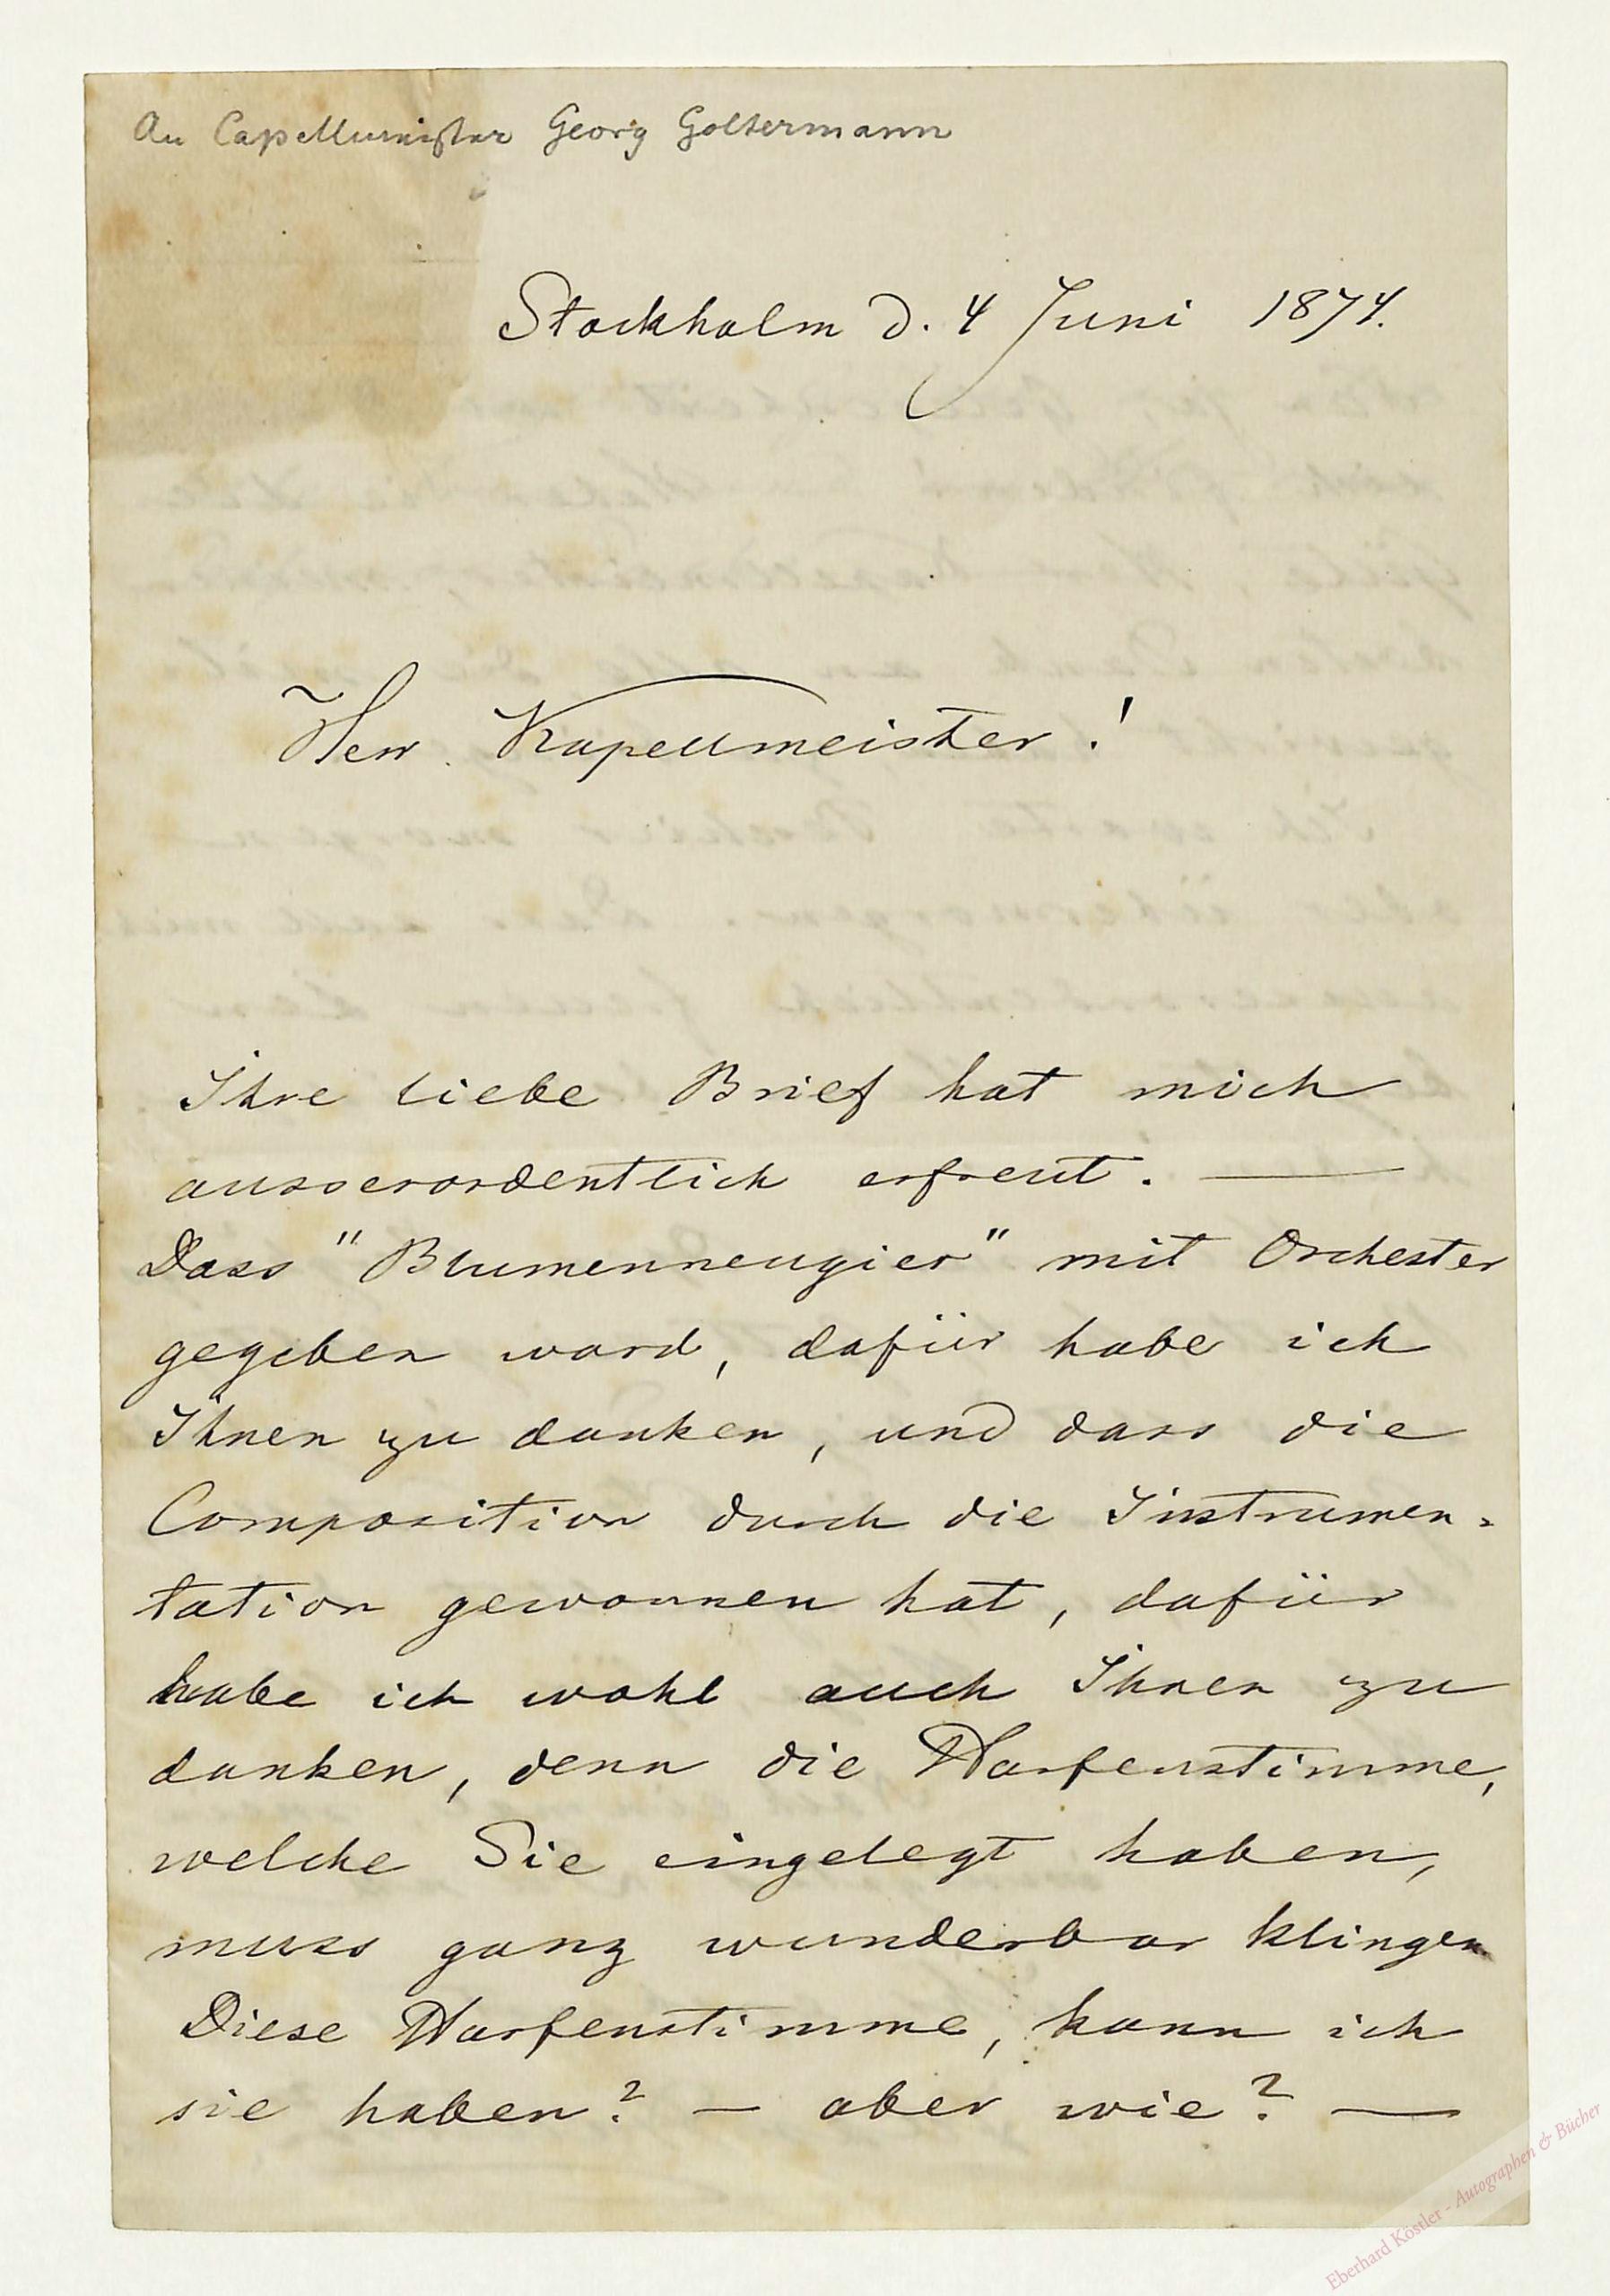 An Capellmeister Georg Goltermann
Stockholm d. 4 Juni 1874.
Herr Kapellmeister!
Ihre liebe Brief hat mich
ausserordentlich erfreut. —
Dass "Blumenneugier" mit Orchester
gegeben ward, dafür habe ich
Ihnen zu danken, und dass die
Composition durch die Instrumen=
tation gewonnen hat, dafür
habe ich wohl auch Ihnen zu
danken, denn die Harfenstimme,
welche Sie eingelegt haben,
muss ganz wunderbar klingen
Diese Harfenstimme, kann ich
sie haben? — aber wie? —
Eberhard Köstler - Autographen & Bücher